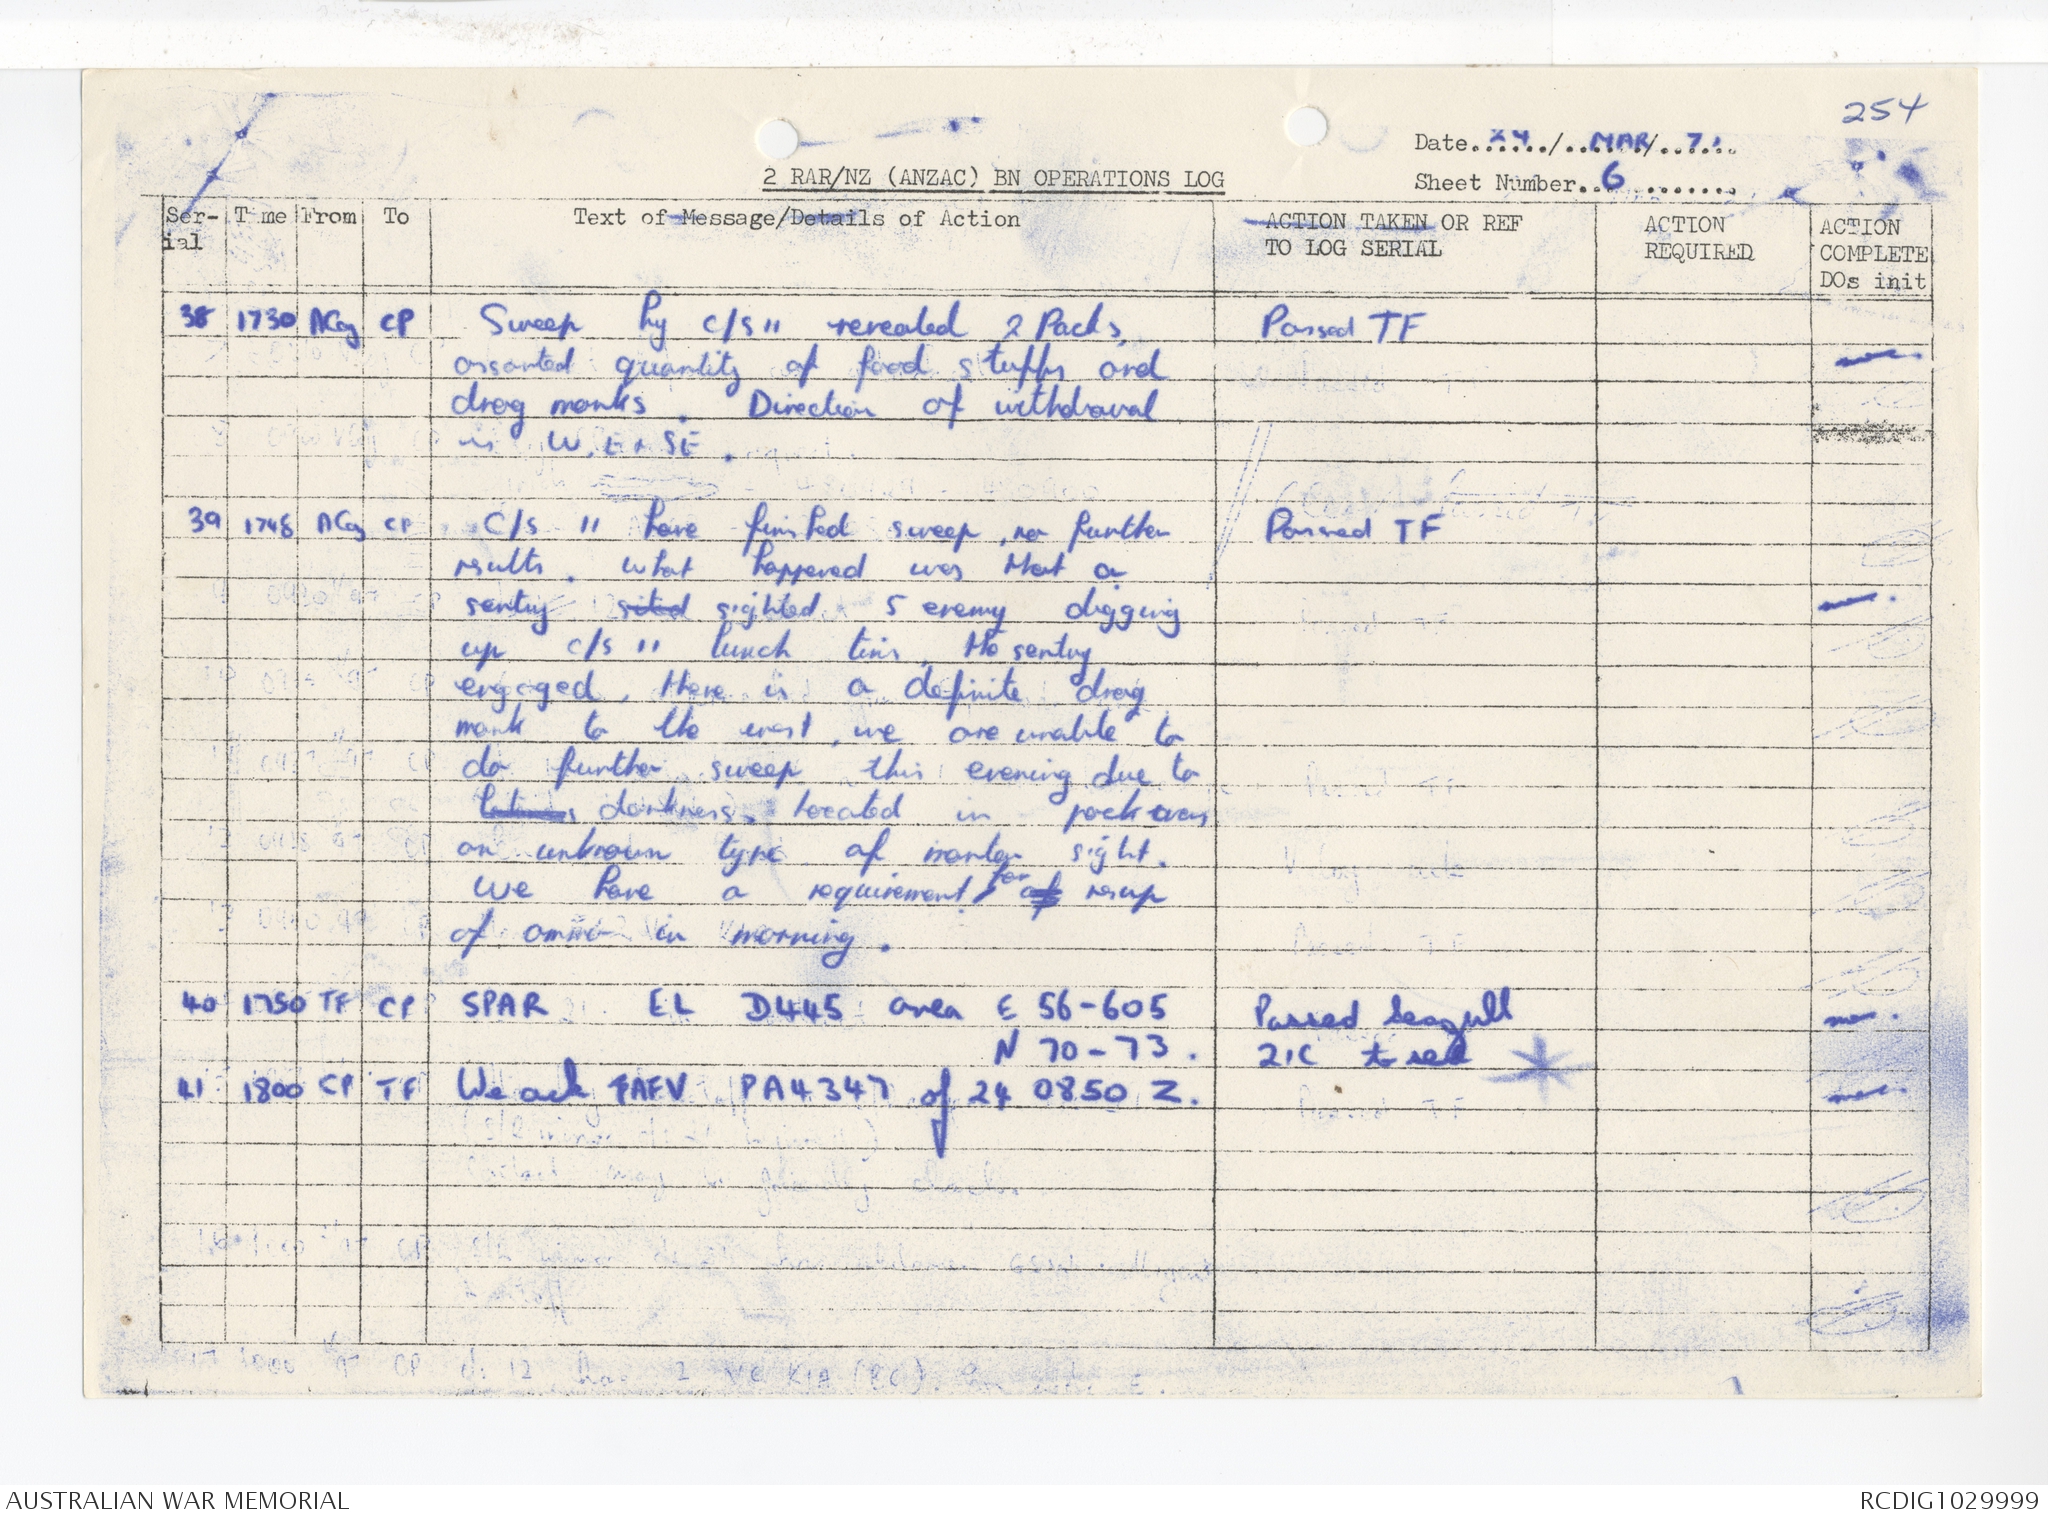 254
Date 24/MAR/71
2 RAR/NZ (ANZAC) BN OPERATIONS LOG
Sheet Number 6
Ser-ial Time From To Text of Message/Details of Action ACTION TAKEN OR REF TO LOG SERIAL ACTION REQUIRED ACTION COMPLETE DOs init
38 1730 A Coy CP Sweep by C/S 11 revealed 2 Packs, Passed TF
assorted quantity of food stuffs and
drag marks. Direction of withdraval
is W, E & SE.
39 1748 A Coy CP C/S 11 have finished sweep, no further Passed TF
results. What happened was that a
sentry sited sighted 5 enemy digging
up C/S 11 lunch tins. The sentry
engaged. There is a definite drag
mark to the west, we are unable to
do further sweep this evening due to
darkness. Located in pock was
an unknown type of mortar sight.
We have a requirement for of resup
of ammo in morning.
40 1750 TF CP SPAR EL D445 area E 56-605 Passed Seagull
N 70-73. 2IC to see
41 1800 CP TF We ack FAFV PA4347 of 24 0850 Z.
AUSTRALIAN WAR MEMORIAL
RCDIG1029999